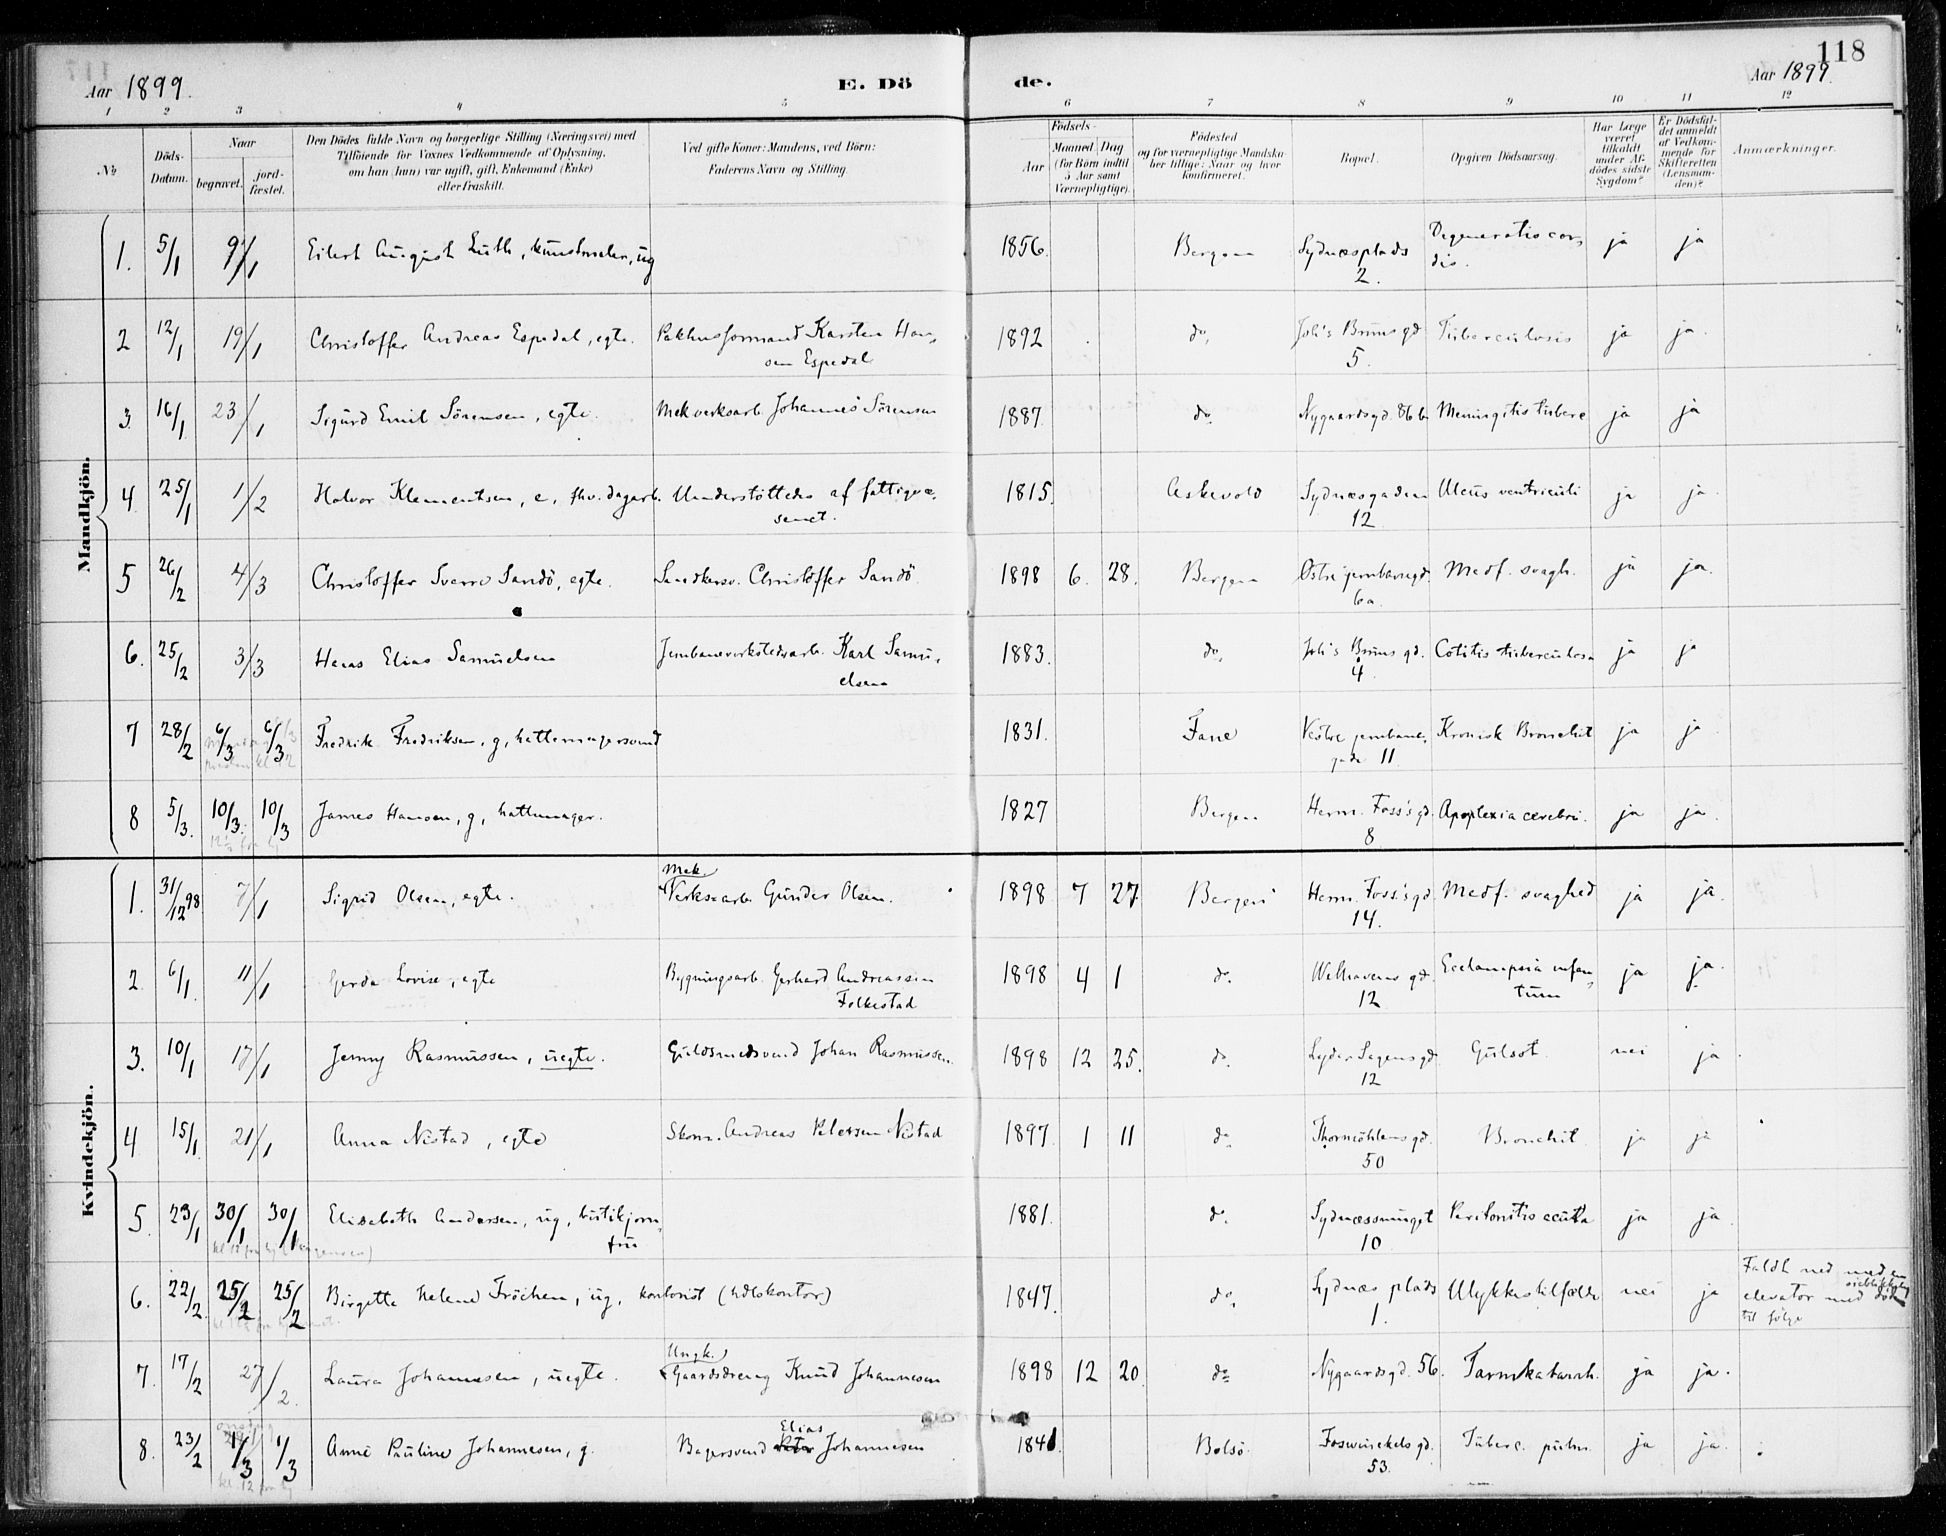 118
Aar 1899.
E. Dö
de.
Aar 1899.
1 2 3 4 5 6 7 8 9 10 11 12
No
Döds-Datum.
Naar
begravet.
jord-fæstet.
Den Dödes fulde Navn og borgerlige Stilling (Næringsvei) med
Tilföiende for Voxnes Vedkommende af Oplysning,
om han (hun) var ugift, gift, Enkemand (Enke)
eller fraskilt.
Ved gifte Koner: Mandens, ved Börn:
Faderens Navn og Stilling.
Födsels-
Aar
Maaned. Dag
(for Börn indtil
5 Aar samt
Værnepligtige).
Födested
og for værnepligtige Mandska-
ber tillige: Naar og hvor
konfirmeret.
Bopæl.
Opgiven Dödsaarsag.
Har Læge
været
tilkaldt
under Af-
dödes sidste
Sygdom?
Er Dödsfal-
det anmeldt
af Vedkom-
mende for
Skifteretten
(Lensman-
den)?
Anmærkninger.
Mandkjön.
1. 5/1 9/1 Eilert August Luth, kunstmaler, ug 1856. Bergen Sydnæsplads 2. Degeneratio cordis. ja ja
2 12/1 19/1 Christoffer Andreas Espedal, egte. Pakhusformand Karsten Hansen Espedal 1892 do, Joh's Bruns gd 5. Tuberculosis ja ja.
3. 16/1 23/1 Sigurd Emil Sörensen, egte. Mek verksarb. Johannes Sörensen 1887 do. Nygaardsgd. 86b Meningitis tuberc ja ja
4 25/1 1/2 Halvor Klementsen, e, fhv. dagarb. Understöttedes af fattigvæsenet. 1815. Askevold Sydnæsgaden 12 Ulcus ventriculi ja ja
5 26/2 4/3 Christoffer Sverre Sandö, egte. Christoffer Sandö. 1898 6. 28. Bergen Östre jernbanegd. 6a. Medf. svagh. ja ja.
6. 25/2 3/3 Hans Elias Samuelsen Jernbaneverkstedsarb. Karl Samuelsen 1883. do, Joh's Bruns gd. 4. tuberculosa ja ja
7 28/2 6/3 6/3 Fredrik Fredriksen, g, hattemagersvend 1831. Fane Vestre jernbanegade 11 Kronisk Bronchit ja ja
8 5/3. 10/3. 10/3 James Hansen, g, hattemager. 1827 Bergen Herm. Foss's gd. 8 Apoplexia cerebri. ja ja.
Kvindekjön.
1. 31/12 98 7/1 Sigrid Olsen, egte. Mek Verksarb. Gunder Olsen. 1898 7 27. Bergen Herm. Foss's gd. 14. Medf. svaghed ja ja.
2. 6/1. 11/1 Gerda Lovise, egte Bygningsarb. Gerhard Andreassen Folkestad 1898 4 1 do. Welhavens gd. 12 Eclampsia infantum ja ja.
3. 10/1 17/1 Jenny Rasmussen, uegte. Guldsmedsvend Johan Rasmussen. 1898 12 25. do. Lyder Sagens gd. 12 Gulsot. nei ja
4 15/1 21/1 Anna Nistad, egte Skom. Andreas Petersen Nistad 1897. 1 11 do. Thormöhlens gd. 50 Bronchit. ja ja
5. 23/1 30/1 30/1 Elisabeth Andersen, ug, 1881. do. Sydnæssmuget 10 Peritonitis acuta ja ja
6. 22/2 25/2 25/2 Birgitte Helene Tröchen, ug, kontorist (hdlskontor) 1847. do, Sydnæs plads 1. Ulykkestilfælde nei ja Faldt ned med en elevator med öieblikkelig död til følge
7. 17/2 27/2. Laura Johannesen, uegte. Ungk. Gaardsdreng Knud Johannesen 1898 12 20 do. Nygaardsgd. 56. Tarmkatarrh. ja ja.
8. 23/2 1/3 1/3 Anne Pauline Johannesen, g. Bagersvend Elias Johannesen 1841. Bolsö. Fosswinckels gd. 53. Tuberc. pulm. ja ja.